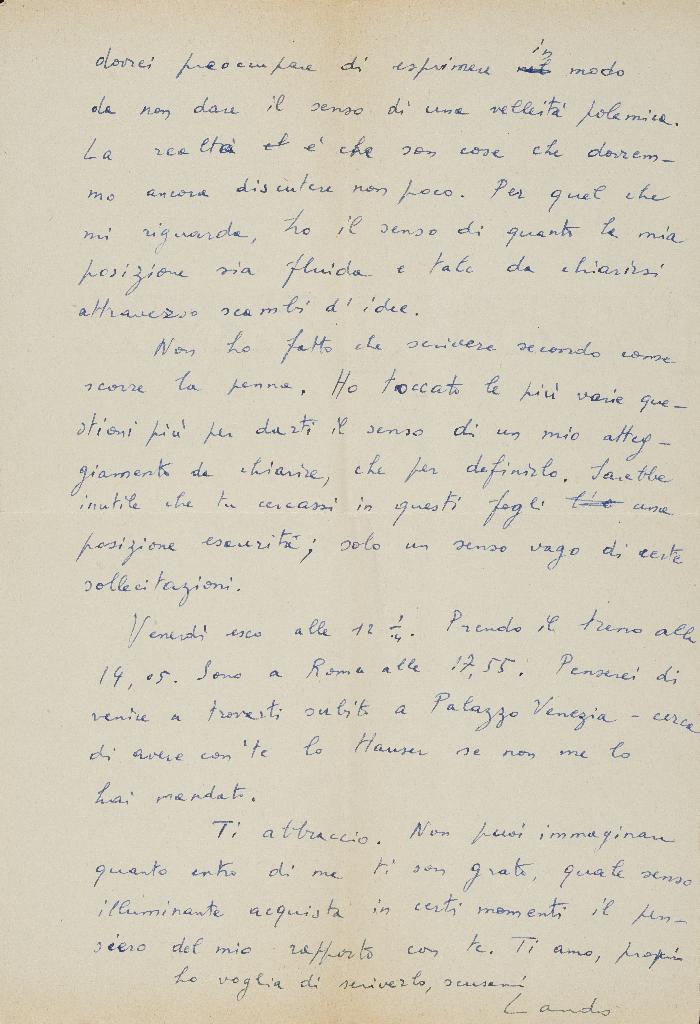 dovrei preoccupare di esprimere in modo
da non dare il senso di una velleità polemica.
La realtà è che son cose che dovrem-
mo ancora discutere non poco. Per quel che
mi riguarda, ho il senso di quanto la mia
posizione sia fluida e tale da chiarirsi
attraverso scambi d'idee.
Non ho fatto che scrivere secondo come
scorre la penna. Ho toccato le più varie que-
stioni più per darti il senso di un mio atteg-
giamento da chiarire, che per definirlo. Sarebbe
inutile che tu cercassi in questi fogli una
posizione esaurita; solo un senso vago di certe
sollecitazioni.
Venerdì esco alle 12 1/4. Prendo il treno alle
14,05. Sono a Roma alle 17,55. Penserei di
venire a trovarti subito a Palazzo Venezia - cerca
di avere con te lo Hauser se non me lo
hai mandato.
Ti abbraccio. Non puoi immaginare
quanto entro di me ti son grato, quale senso
illuminante acquista in certi momenti il pen-
siero del mio rapporto con te. Ti amo, proprio
ho voglia di scriverlo, scusami
Lando